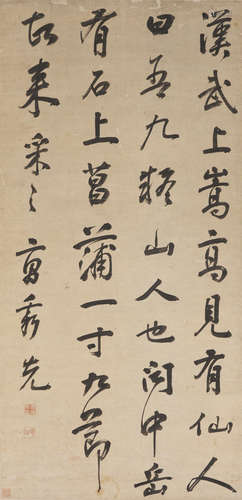 漢武上嵩高見有仙人
曰吾九疑山人也问中岳
有石上菖蒲一寸九節
故来采之 曹秀先